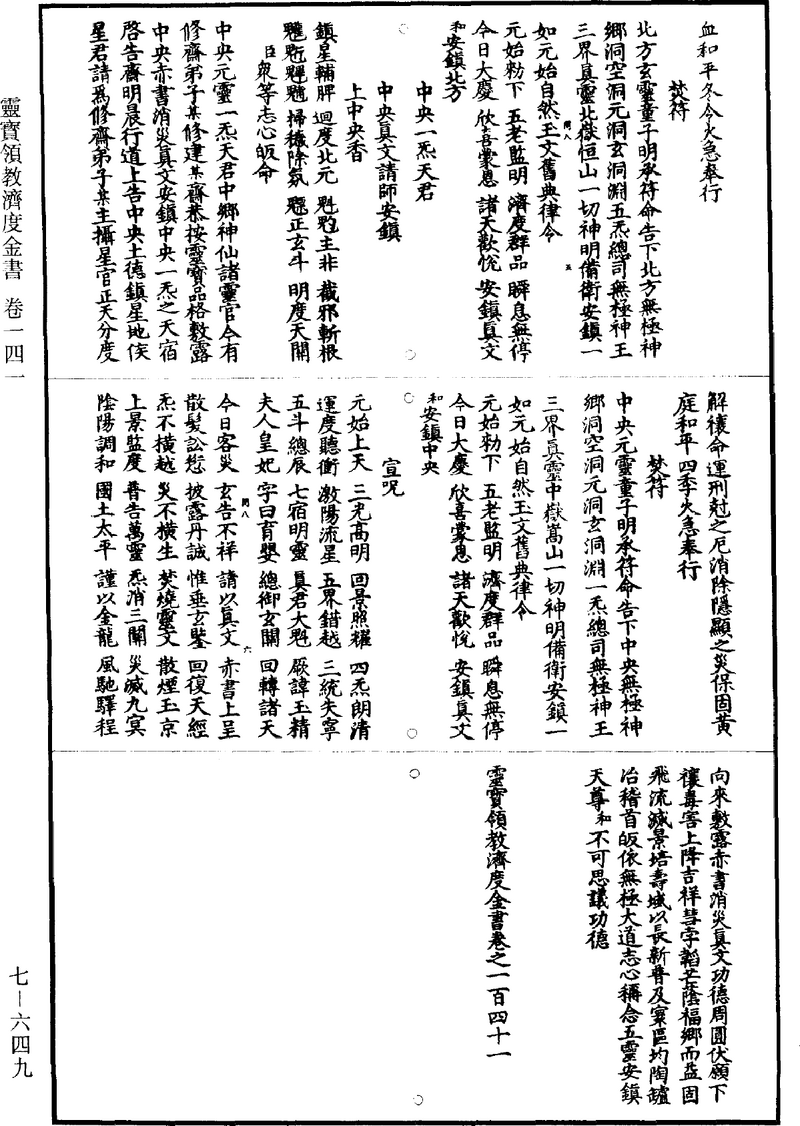 血和平冬令火急奉行
焚符
北方玄靈童子明承符命告下北方無極神
鄉洞空洞元洞玄洞淵五炁總司無極神王
三界真靈北嶽恒山一切神明備衛安鎮一
如元始自然玉文舊典律令
元始勑下 五老監明 濟度群品 瞬息無停
今日大慶 欣喜蒙恩 諸天歡悅 安鎮真文
和安鎮北方
中央一炁天君
中央真文請師安鎮
上中央香
鎮星輔脾 迴度北元 魁䰢主非 截邪斬根
掃穢除氛 魒正玄斗 明度天關
臣眾等志心皈命
中央元靈一炁天君中鄉神仙諸靈官今有
修齋弟子某修建某齋恭按靈寶品格敷露
中央赤書消災真文安鎮中央一炁之天宿
啓告齋明晨行道上告中央土德鎮星地侯
星君請爲修齋弟子某主攝星官正天分度
解禳命運刑尅之厄消除隱顯之災保固黃
庭和平四季火急奉行
焚符
中央元靈童子明承符命告下中央無極神
鄉洞空洞元洞玄洞淵一炁總司無極神王
三界真靈中嶽嵩山一切神明備衛安鎮一
如元始自然玉文舊典律令
元始勑下 五老監明 濟度群品 瞬息無停
今日大慶 欣喜蒙恩 諸天歡悅 安鎮真文
和安鎮中央
宣呪
元始上天 三光高明 回景照耀 四炁朗清
運度聽衝 激陽流星 五界錯越 三統失寧
五斗總辰 七宿明靈 真君大魁 厥諱玉精
夫人皇妃 字曰育嬰 總御玄關 回轉諸天
今日客災 玄告不祥 請以真文 赤書上呈
散髮訟愆 披露丹誠 惟垂玄鑒 回復天經
炁不橫越 災不橫生 焚燒靈文 散煙玉京
上景監度 普告萬靈 炁消三關 災滅九冥
陰陽調和 國土太平 謹以金龍 風馳驛程
向來敷露赤書消災真文功德周圓伏願下
禳毒害上降吉祥彗孛韜芒蔭福鄉而益固
飛流滅景培壽域以長新普及寰區均陶罏
冶稽首皈依無極大道志心稱念五靈安鎮
天尊 和 不可思議功德
靈寶領教濟度金書卷之一百四十一
靈寶領教濟度金書 卷一四一
七—六四九